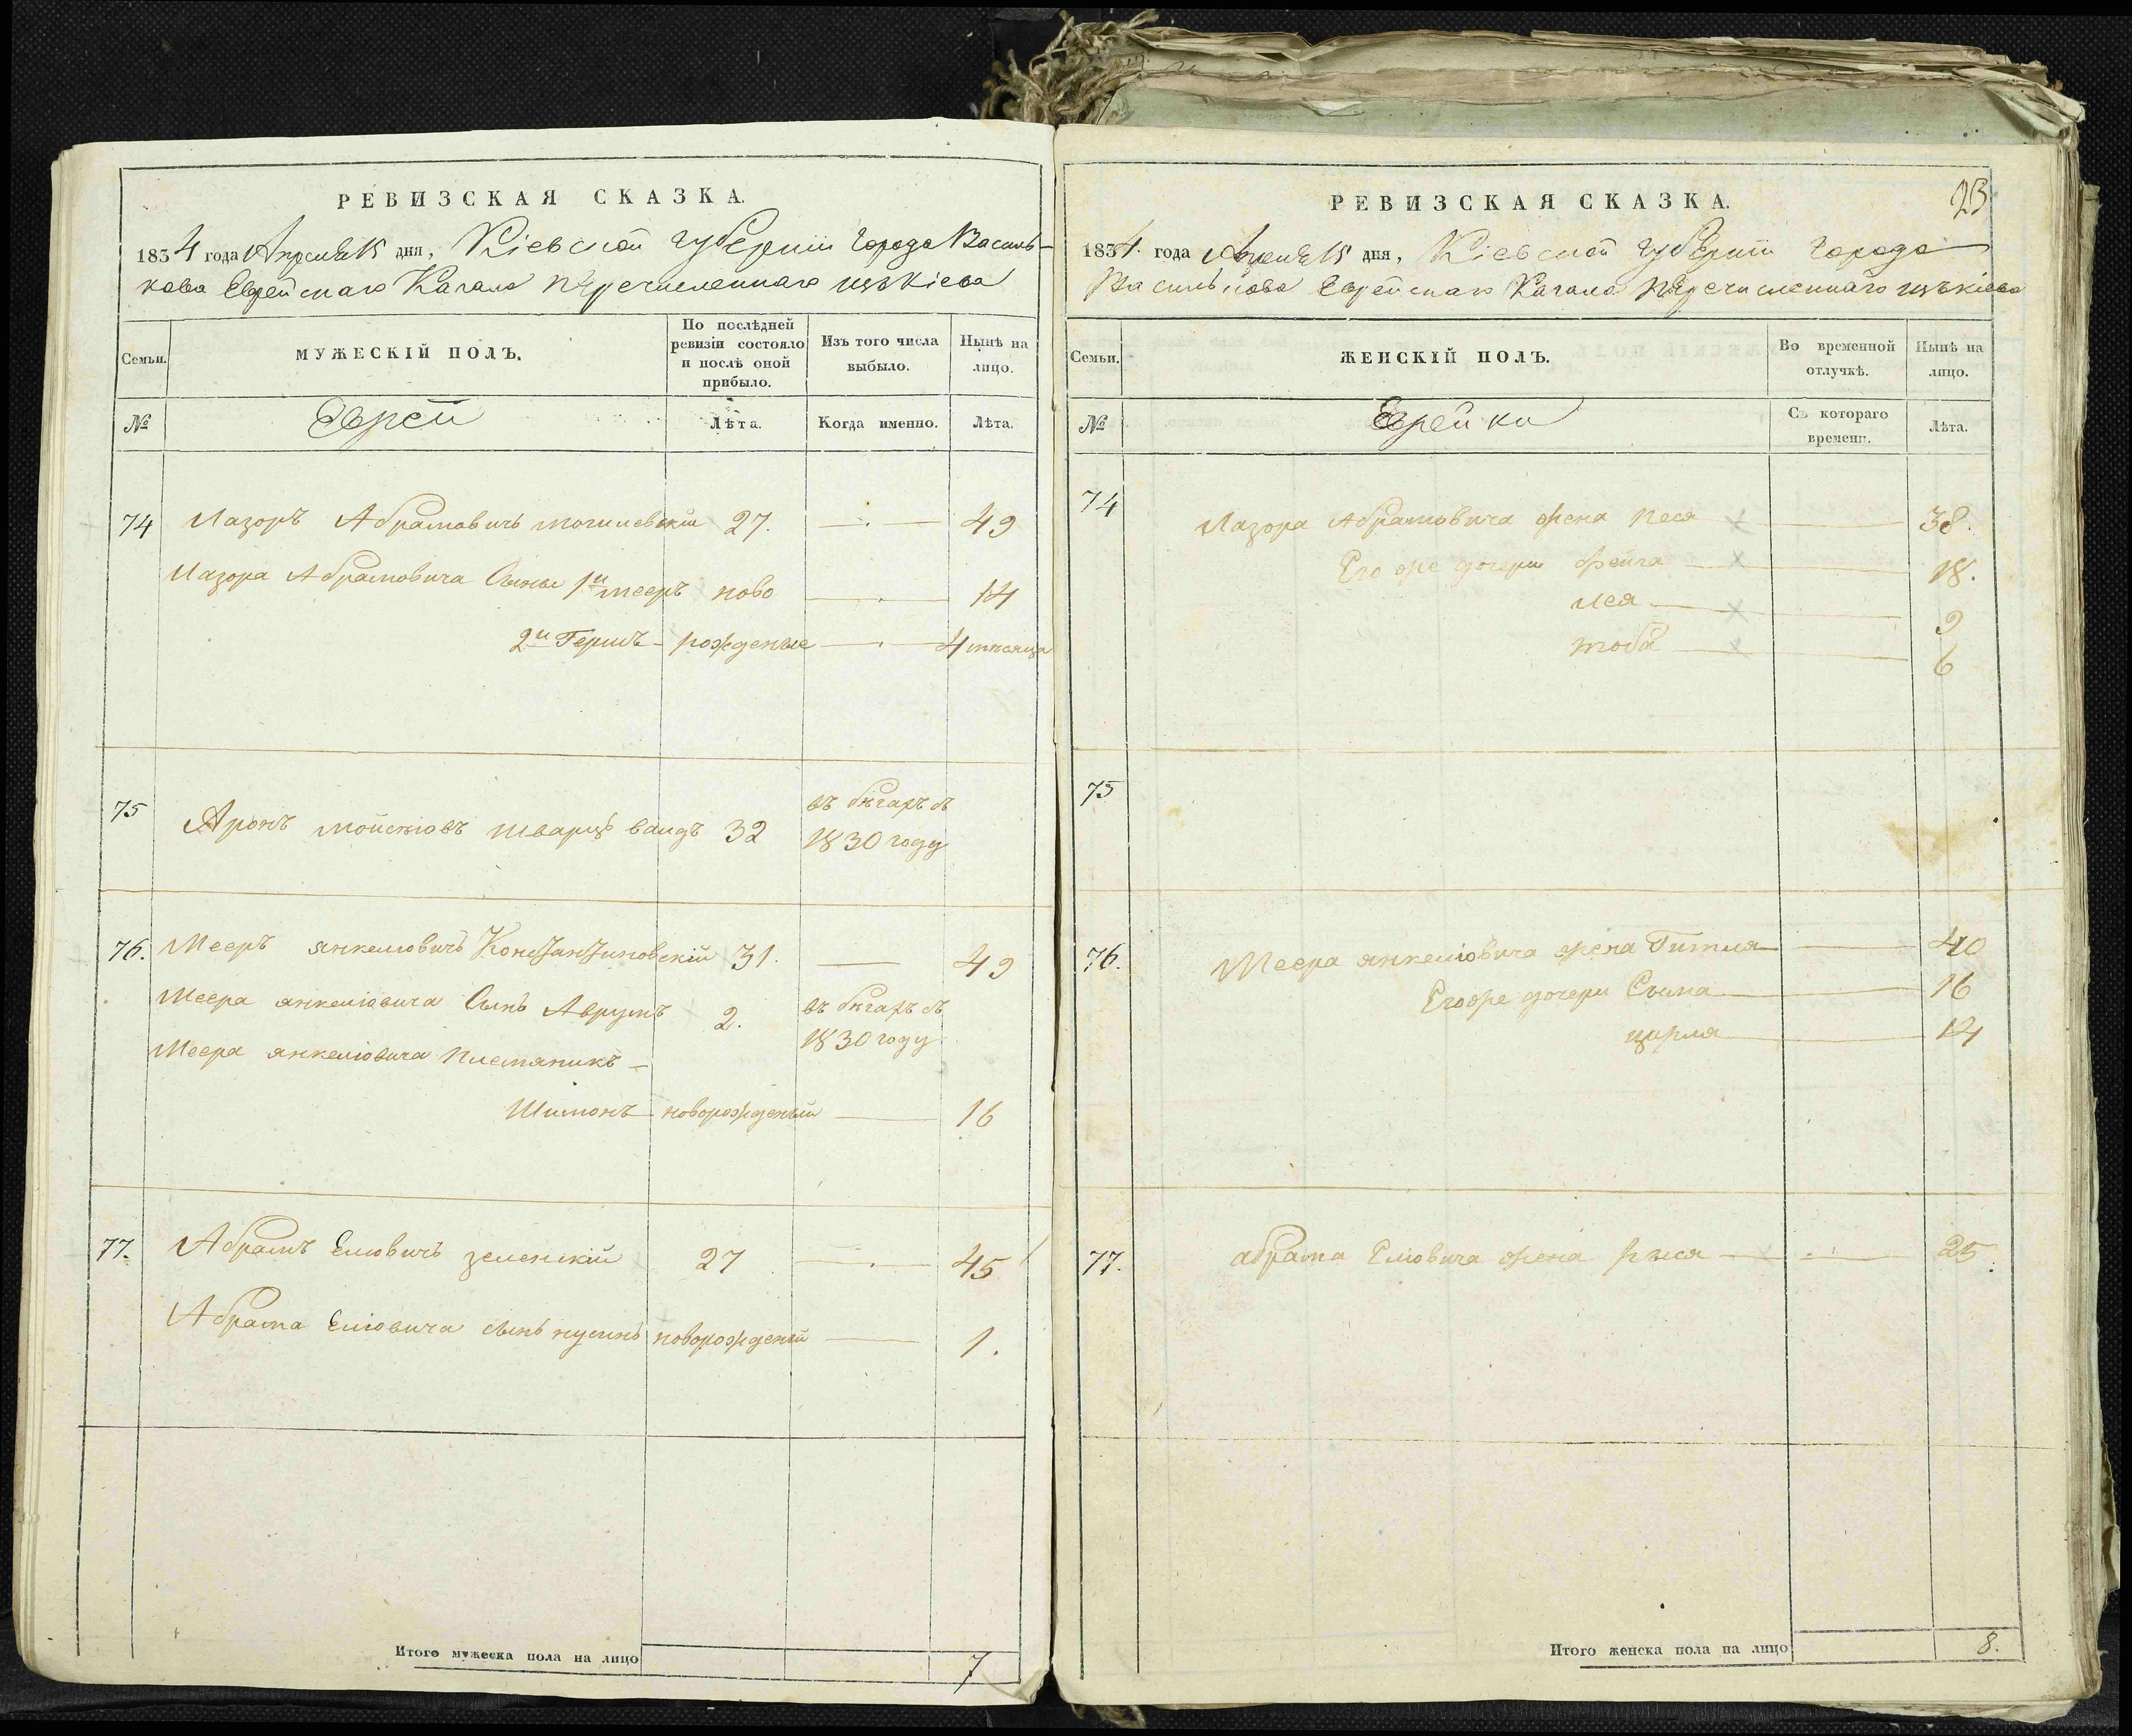 РЕВИЗСКАЯ СКАЗКА.
1834 года Апреля 15 дня, Кіевской губерніи города Василь-
кова Еврейскаго Кагала перечисленнаго изъ Кіева
Семьи.
МУЖЕСКІЙ ПОЛЪ.
По послѣдней ревизіи состояло и послѣ оной прибыло.
Изъ того числа выбыло.
Нынѣ на лицо.
№
Евреи
Лѣта.
Когда именно.
Лѣта.
74 Лазоръ Абрамовичъ могилевскій 27. 49
Лазора Абрамовича Сыны 1й мееръ ново 14
2й Гершъ рожденые 4 месяца
75 Аронъ мойсіовъ шварцъ вандъ 32 въ бѣгахъ съ 1830 году
76. Мееръ янкеліовичъ Константиновскій 31. 49
Меера янкеліовича Сынъ Аврумъ 2. въ бѣгахъ съ 1830 году
Меера янкеліовича племяникъ
Шимонъ новорожденый 16
77. Абрамъ Еліовичъ зеленскій 27 45
Абрама Еліовича сынъ нусинъ новорожденый 1.
Итого мужеска пола на лицо 7
23
РЕВИЗСКАЯ СКАЗКА.
1834. года Апреля 15 дня, Кіевской губерніи города
Василькова Еврейскаго Кагала перечисленнаго изъ Кіева
Семьи.
ЖЕНСКІЙ ПОЛЪ.
Во временной отлучкѣ.
Нынѣ на лицо.
№
Еврейки
Съ котораго времени.
Лѣта.
74 Лазора Абрамовича жена Песя 38.
Его же дочери фейга 18.
лея 9
тоба 6
75
76. Меера янкеліовича жена Гитля 40
Его же дочери Сима 16
цирля 14
77. абрама Еліовича жена 25
Итого женска пола на лицо 8.